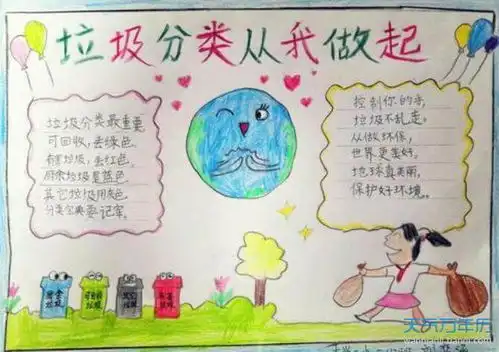 垃圾分类从我做起
垃圾分类最重要
可回收,丢绿色.
有害垃圾,丢红色.
厨余垃圾是蓝色
其它垃圾用灰色
分类宝典要记牢.
控制你的手,
垃圾不乱走.
从做环保,
世界更美好.
地球真美丽,
保护好环境.
垃圾
垃圾
垃圾
垃圾
天气万年历